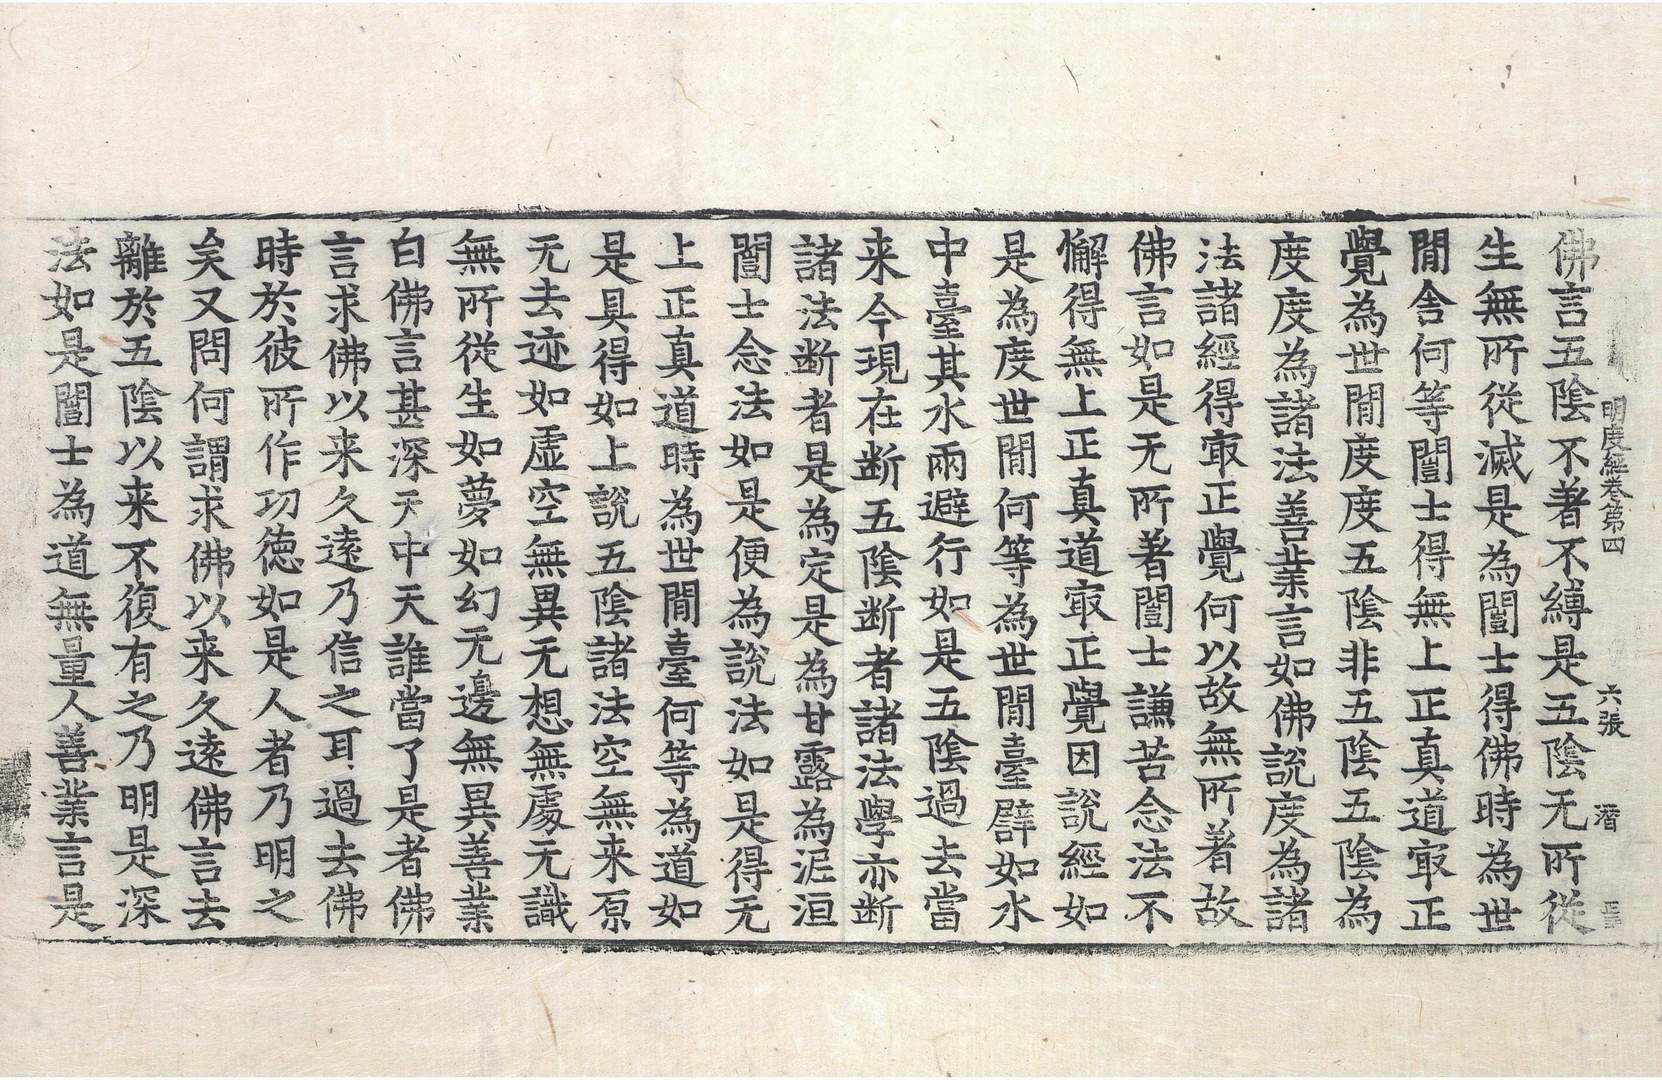 明度經卷第四 六張 潛
佛言五陰不著不縛是五陰无所從
生無所從滅是為闓士得佛時為世
閒舍何等闓士得無上正真道㝡正
覺為世閒度度五陰非五陰五陰為
度度為諸法善業言如佛說度為諸
法諸經得㝡正覺何以故無所著故
佛言如是无所著闓士謙苦念法不
懈得無上正真道㝡正覺因說經如
是為度世閒何等為世閒臺譬如水
中臺其水兩避行如是五陰過去當
来今現在断五陰断者諸法學亦断
諸法断者是為定是為甘露為泥洹
闓士念法如是便為說法如是得无
上正真道時為世閒臺何等為道如
是具得如上說五陰諸法空無来原
无去迹如虛空無異无想無處无識
無所從生如夢如幻无邊無異善業
白佛言甚深天中天誰當了是者佛
言求佛以来久遠乃信之耳過去佛
時於彼所作功徳如是人者乃明之
矣又問何謂求佛以来久遠佛言去
離於五陰以来不復有之乃明是深
法如是闓士為道無量人善業言是